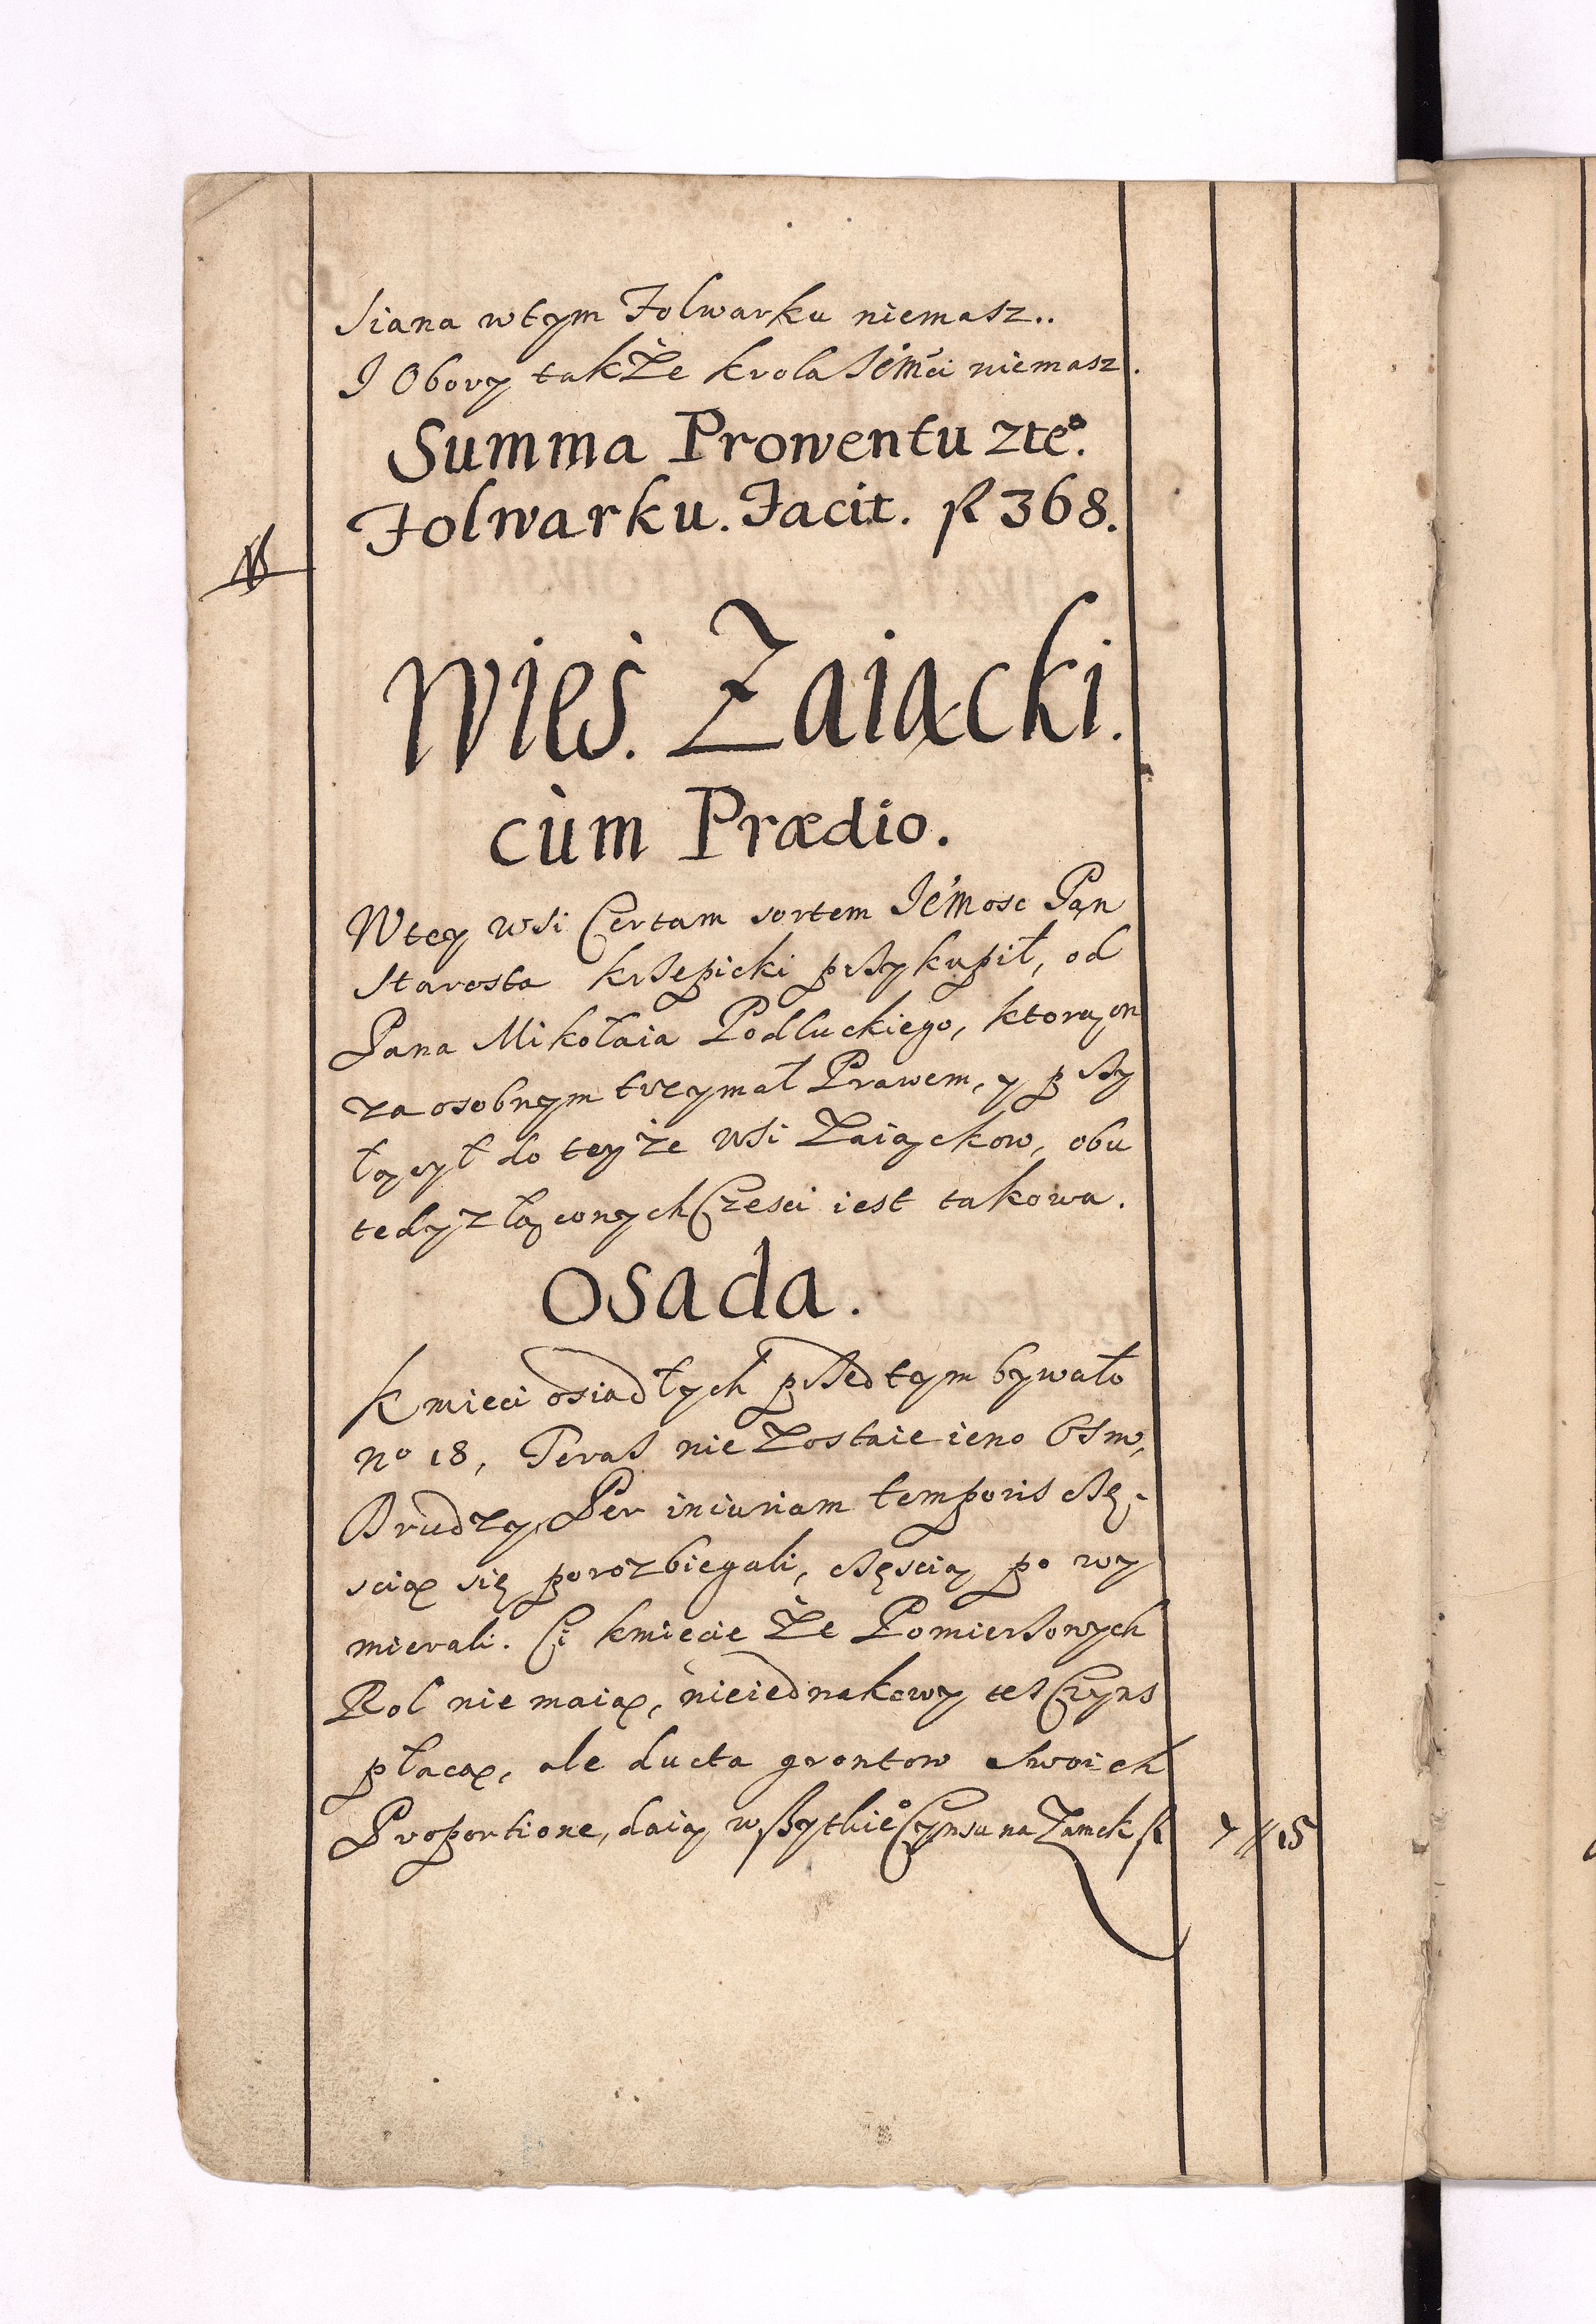 Siana wtym Folwarku niemasz..
I Obory takŻe krola Jemći niemasz.
Summa Prowentu zteº.
Folwarku. Facit. fl 368.
NB
Wieś. Zaiącki.
cùm Prædio.
Wtey wsi Certam sortem Jemosc Pan
Starosta krzepicki przykupił, od
Pana Mikołaia Podluckiego, ktorą on
za osobnym trzymał Prawem, y przy
łączył do teyże wsi Zaiąckow, obu
tedy złączonych Czesci iest takowa.
Osada.
Kmieci osiadłych przedtym bywało
Nº 18, Teras nie Zostaie ieno Osm,
Drudzy, Per iniuriam temporis częs-
sciąx się porozbiegali, częscią po wy
mierali. Ci kmiecie Że Pomierzonych
Rol nie maią, nieiednakowy tes Czyns
płacą, ale ducta grontow swoich
Proportione, daią wszytkieº Czynsu na Zamek fl 7 // 15